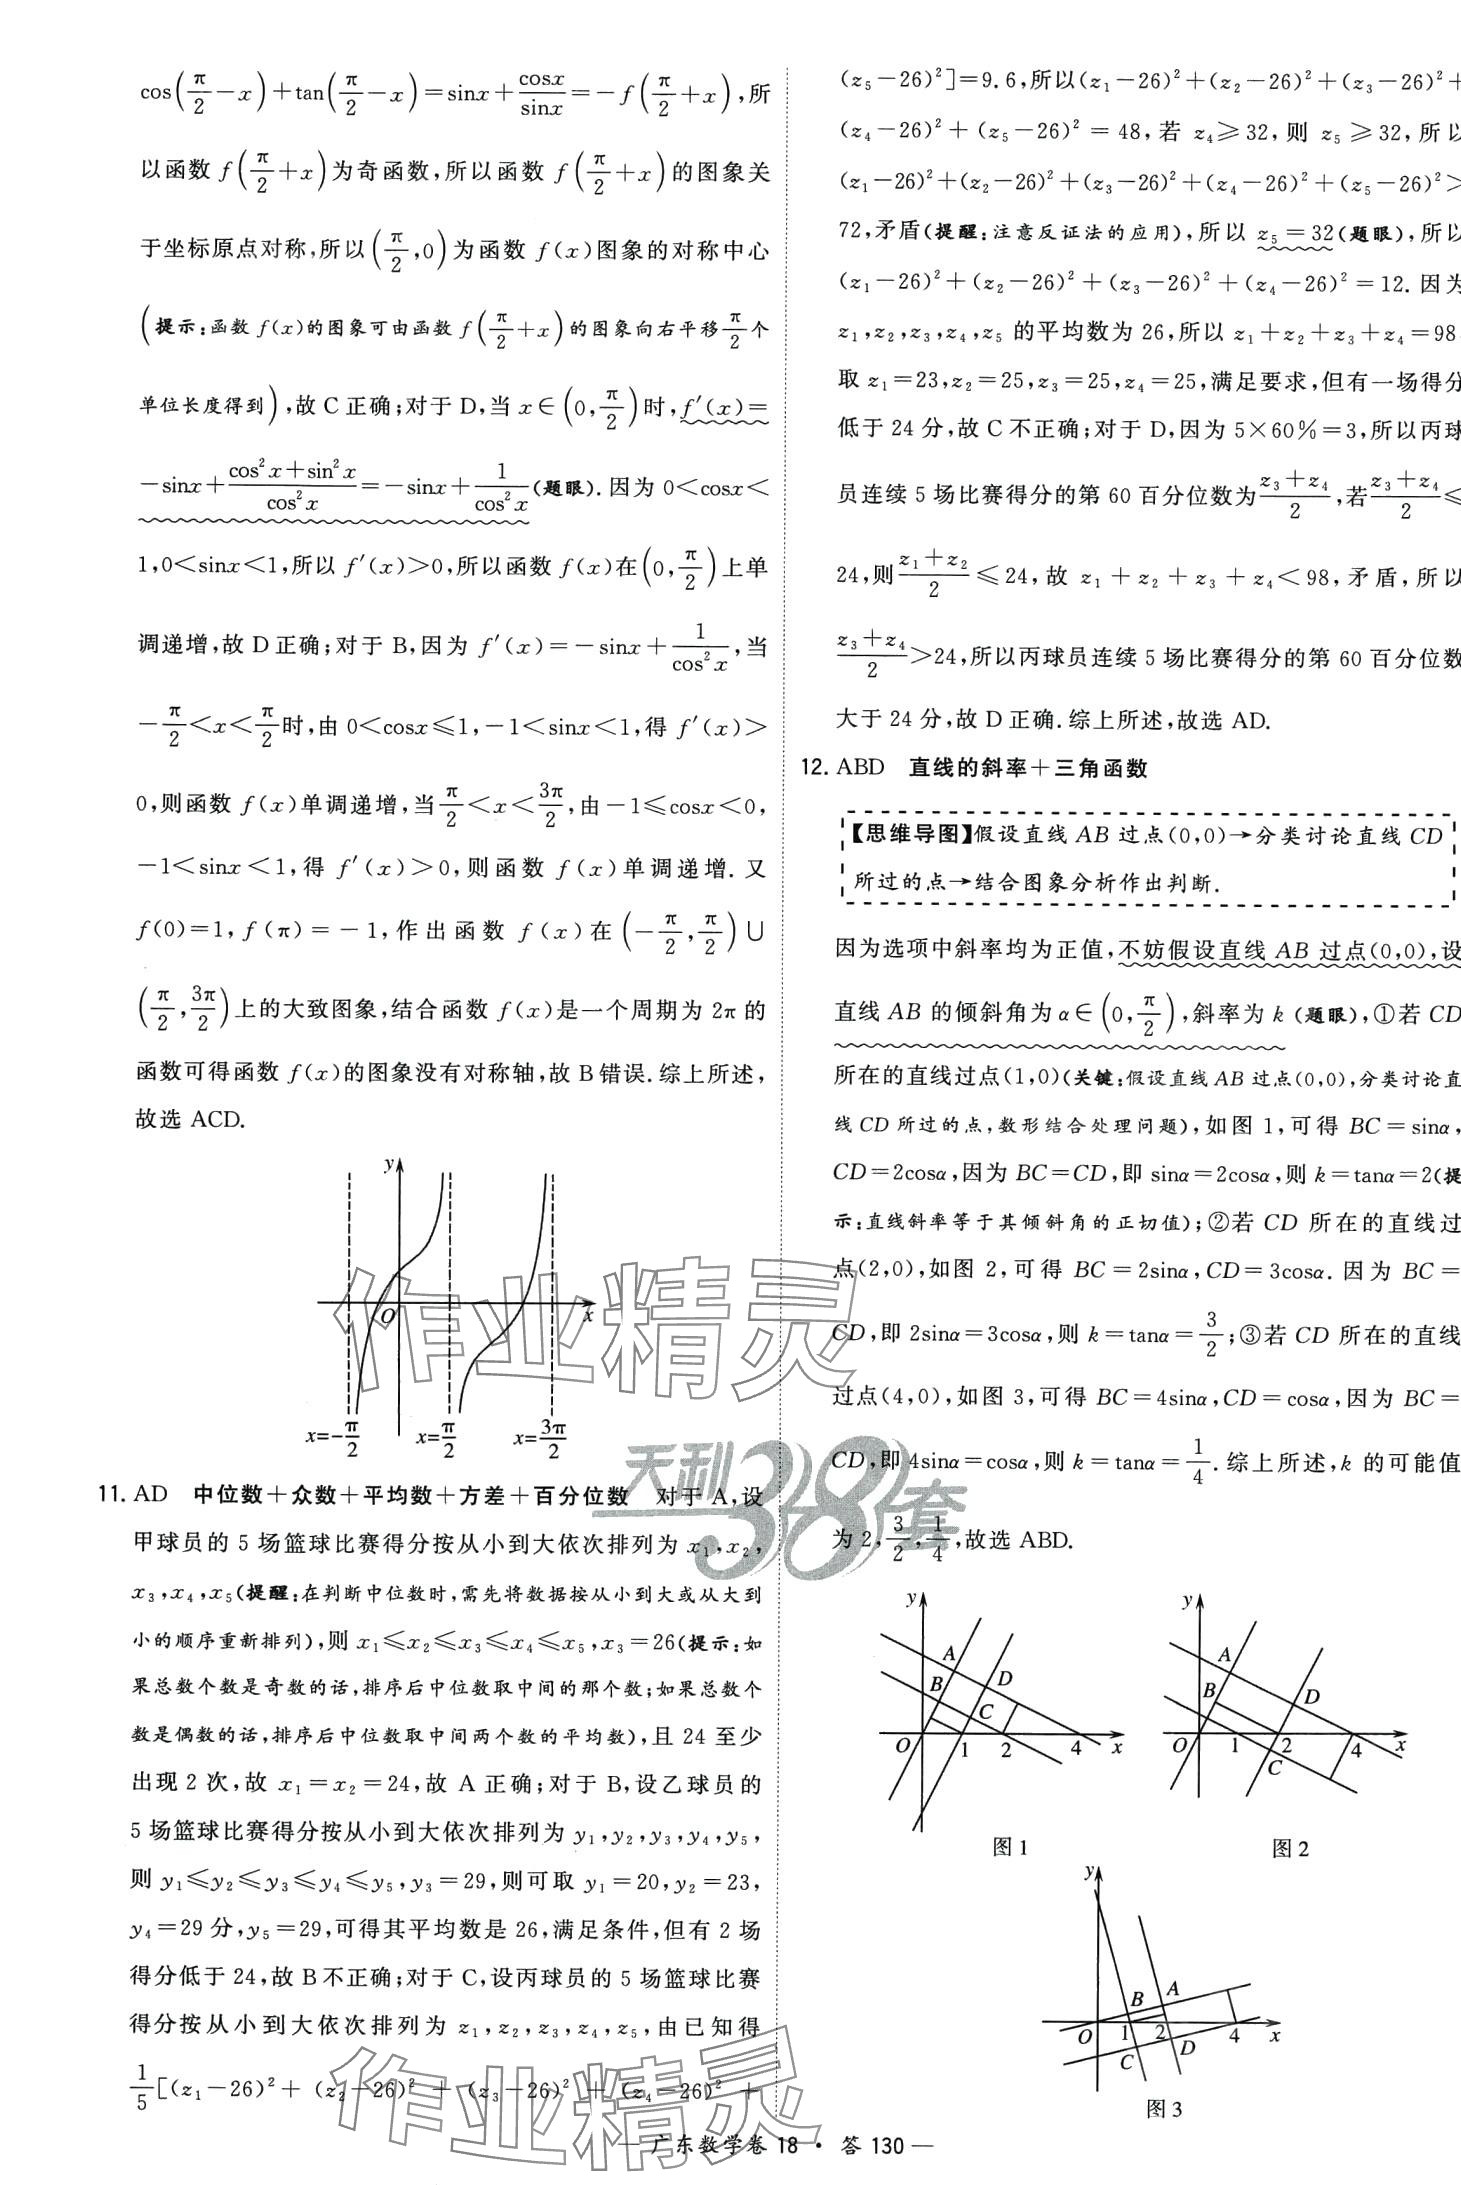 cos(π/2−x)+tan(π/2−x)=sinx+cosx/sinx=−f(π/2+x),所
以函数 f(π/2+x)为奇函数,所以函数 f(π/2+x)的图象关
于坐标原点对称,所以(π/2,0)为函数 f(x)图象的对称中心
(提示:函数 f(x)的图象可由函数 f(π/2+x)的图象向右平移π/2个
单位长度得到),故 C 正确;对于 D,当 x∈(0,π/2)时,f′(x)=
−sinx+(cos²x+sin²x)/cos²x=−sinx+1/cos²x(题眼).因为 0<cosx<
1,0<sinx<1,所以 f′(x)>0,所以函数 f(x)在(0,π/2)上单
调递增,故 D 正确;对于 B,因为 f′(x)=−sinx+1/cos²x,当
−π/2<x<π/2时,由 0<cosx≤1,−1<sinx<1,得 f′(x)>
0,则函数 f(x)单调递增,当π/2<x<3π/2,由−1≤cosx<0,
−1<sinx<1,得 f′(x)>0,则函数 f(x)单调递增.又
f(0)=1,f(π)=−1,作出函数 f(x)在(−π/2,π/2)∪
(π/2,3π/2)上的大致图象,结合函数 f(x)是一个周期为 2π 的
函数可得函数 f(x)的图象没有对称轴,故 B 错误.综上所述,
故选 ACD.
y
O
x
x=−π/2 x=π/2 x=3π/2
11. AD 中位数+众数+平均数+方差+百分位数 对于 A,设
甲球员的 5 场篮球比赛得分按从小到大依次排列为 x₁,x₂,
x₃,x₄,x₅(提醒:在判断中位数时,需先将数据按从小到大或从大到
小的顺序重新排列),则 x₁≤x₂≤x₃≤x₄≤x₅,x₃=26(提示:如
果总数个数是奇数的话,排序后中位数取中间的那个数;如果总数个
数是偶数的话,排序后中位数取中间两个数的平均数),且 24 至少
出现 2 次,故 x₁=x₂=24,故 A 正确;对于 B,设乙球员的
5 场篮球比赛得分按从小到大依次排列为 y₁,y₂,y₃,y₄,y₅,
则 y₁≤y₂≤y₃≤y₄≤y₅,y₃=29,则可取 y₁=20,y₂=23,
y₄=29 分,y₅=29,可得其平均数是 26,满足条件,但有 2 场
得分低于 24,故 B 不正确;对于 C,设丙球员的 5 场篮球比赛
得分按从小到大依次排列为 z₁,z₂,z₃,z₄,z₅,由已知得
1/5[(z₁−26)²+(z₂−26)²+(z₃−26)²+(z₄−26)²+
(z₅−26)²]=9.6,所以(z₁−26)²+(z₂−26)²+(z₃−26)²+
(z₄−26)²+(z₅−26)²=48,若 z₄≥32,则 z₅≥32,所以
(z₁−26)²+(z₂−26)²+(z₃−26)²+(z₄−26)²+(z₅−26)²>
72,矛盾(提醒:注意反证法的应用),所以 z₅=32(题眼),所以
(z₁−26)²+(z₂−26)²+(z₃−26)²+(z₄−26)²=12.因为
z₁,z₂,z₃,z₄,z₅ 的平均数为 26,所以 z₁+z₂+z₃+z₄=98
取 z₁=23,z₂=25,z₃=25,z₄=25,满足要求,但有一场得分
低于 24 分,故 C 不正确;对于 D,因为 5×60%=3,所以丙球
员连续 5 场比赛得分的第 60 百分位数为(z₃+z₄)/2,若(z₃+z₄)/2≤
24,则(z₁+z₂)/2≤24,故 z₁+z₂+z₃+z₄<98,矛盾,所以
(z₃+z₄)/2>24,所以丙球员连续 5 场比赛得分的第 60 百分位数
大于 24 分,故 D 正确.综上所述,故选 AD.
12. ABD 直线的斜率+三角函数
【思维导图】假设直线 AB 过点(0,0)→分类讨论直线 CD
所过的点→结合图象分析作出判断.
因为选项中斜率均为正值,不妨假设直线 AB 过点(0,0),设
直线 AB 的倾斜角为 α∈(0,π/2),斜率为 k(题眼),①若 CD
所在的直线过点(1,0)(关键:假设直线 AB 过点(0,0),分类讨论直
线 CD 所过的点,数形结合处理问题),如图 1,可得 BC=sinα,
CD=2cosα,因为 BC=CD,即 sinα=2cosα,则 k=tanα=2(提
示:直线斜率等于其倾斜角的正切值);②若 CD 所在的直线过
点(2,0),如图 2,可得 BC=2sinα,CD=3cosα.因为 BC=
CD,即 2sinα=3cosα,则 k=tanα=3/2;③若 CD 所在的直线
过点(4,0),如图 3,可得 BC=4sinα,CD=cosα,因为 BC=
CD,即 4sinα=cosα,则 k=tanα=1/4.综上所述,k 的可能值
为 2,3/2,1/4,故选 ABD.
y A B D C O 1 2 4 x
图 1
y A B D O 1 2 4 x C
图 2
y B A O 1 2 4 x C D
图 3
作业精灵
天利38套
作业精灵
— 广东数学卷 18 · 答 130 —